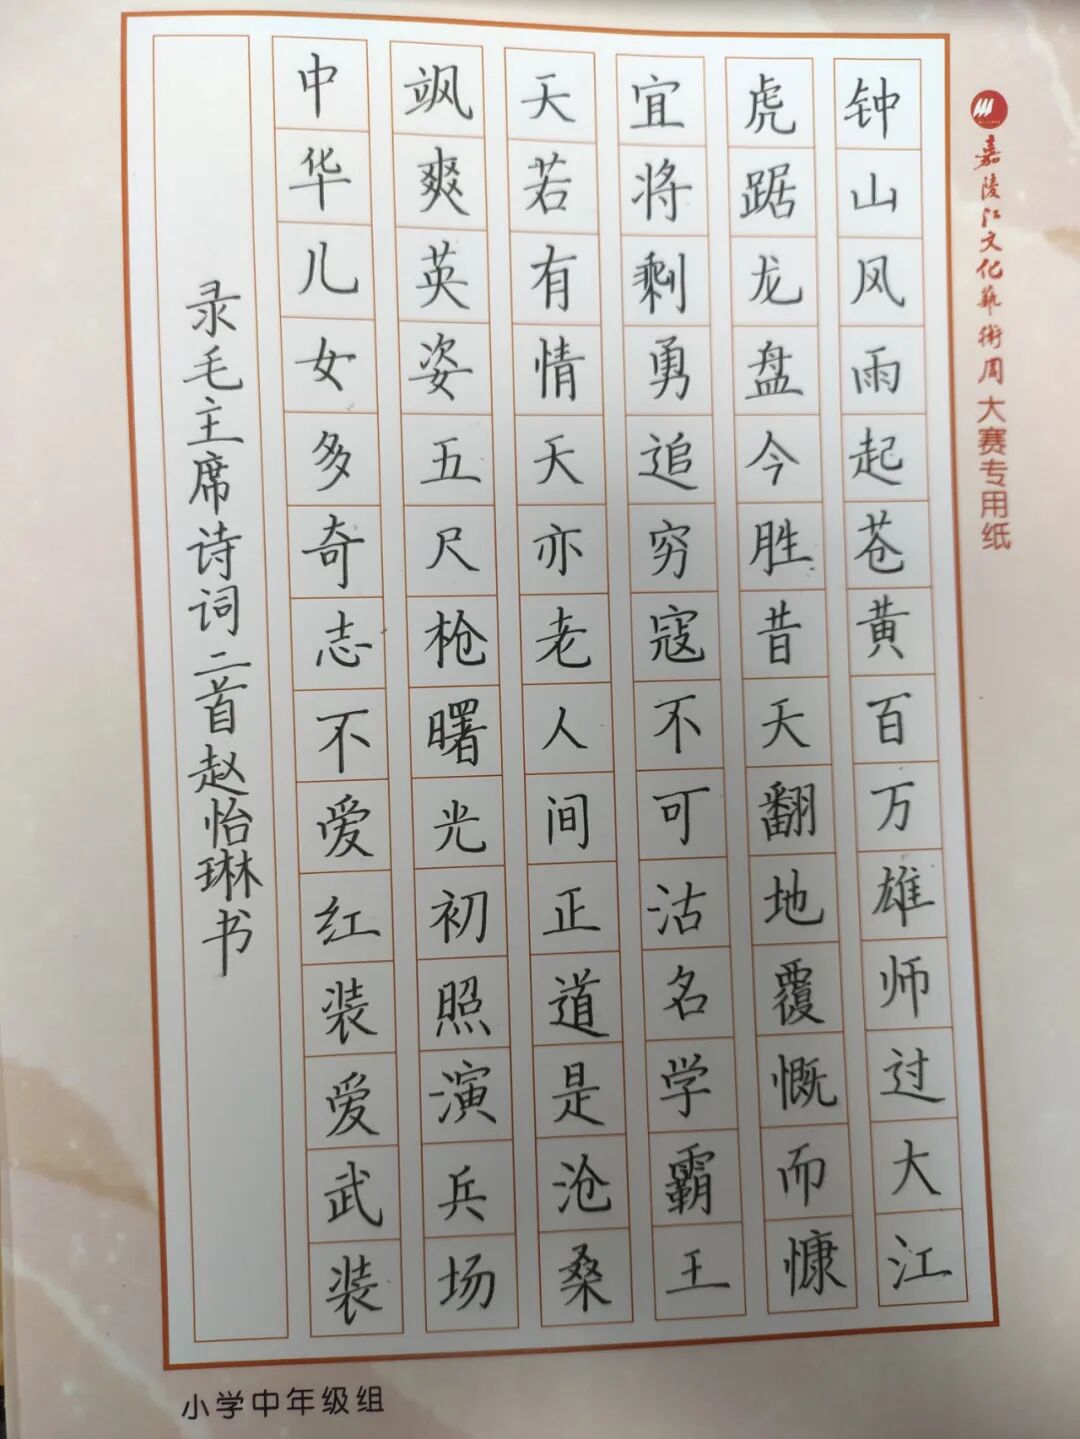 嘉陵江文化藝術周大赛专用纸
钟山风雨起苍黄百万雄师过大江
虎踞龙盘今胜昔天翻地覆慨而慷
宜将剩勇追穷寇不可沽名学霸王
天若有情天亦老人间正道是沧桑
飒爽英姿五尺枪曙光初照演兵场
中华儿女多奇志不爱红装爱武装
录毛主席诗词二首赵怡琳书
小学中年级组